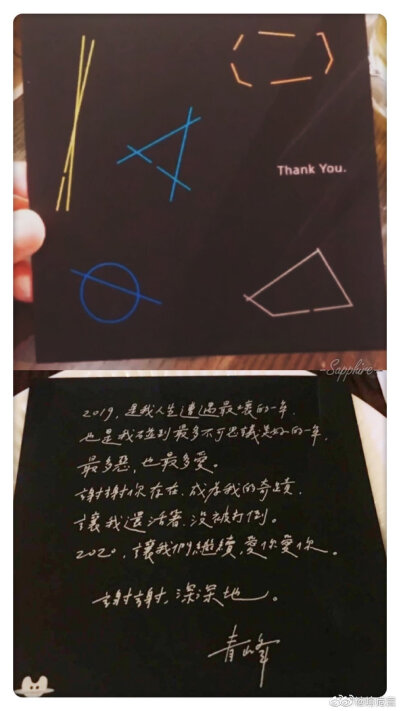 Thank You.
-Sapphire-
2019，是我人生遭遇最壞的一年，
也是我碰到最多不可思議美好的一年，
最多惡，也最多愛。
謝謝你存在，成為我的奇蹟，
讓我還活著，沒被打倒。
2020，讓我們繼續，愛你愛你。
謝謝，深深地。
青峰